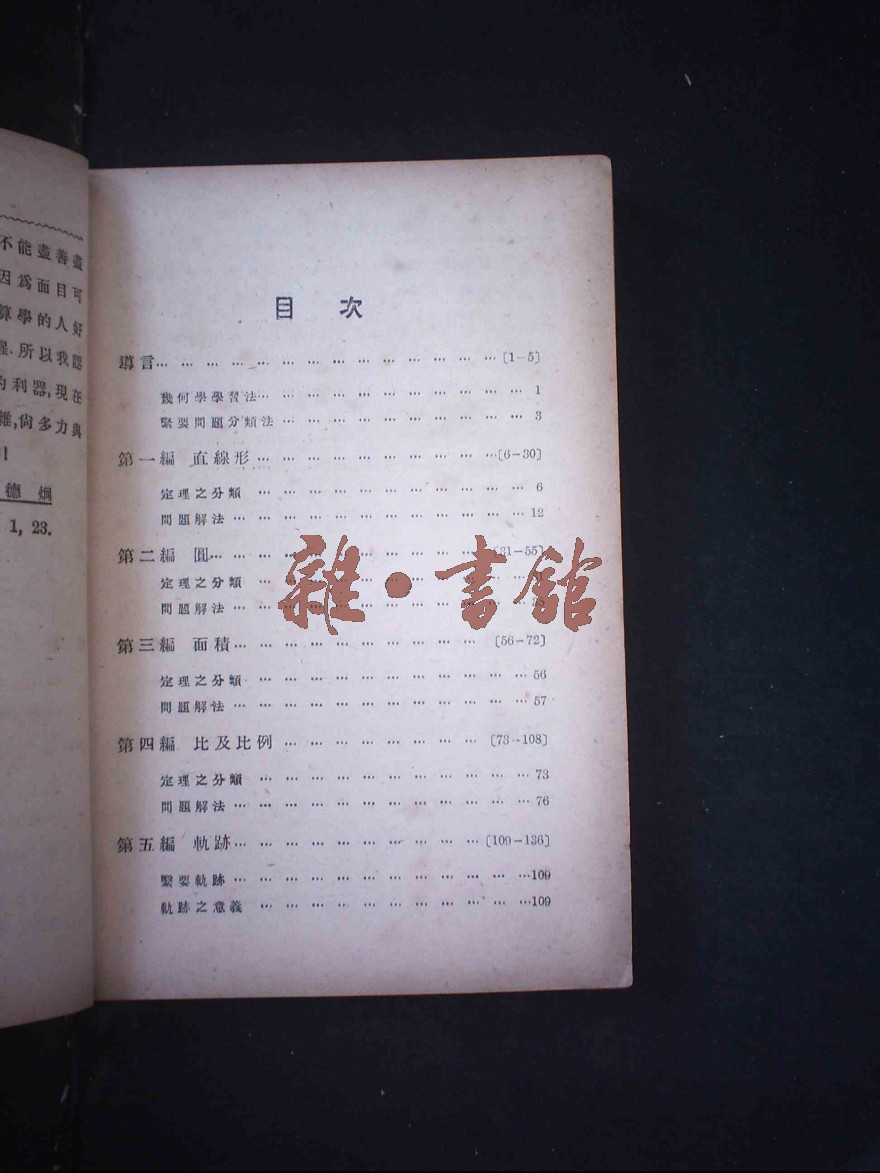 不能盡善盡
因爲面目可
算學的人好
所以我認
利器,現在
雜,尙多力與
!
德烱
1, 23.
目 次
導言… … … … … … … … … … … … … …[1-5]
幾何學學習法… … … … … … … … … … … 1
緊要問題分類法 … … … … … … … … … … 3
第一編 直線形… … … … … … … … … …[6-30]
定理之分類 … … … … … … … … … … … 6
問題解法 … … … … … … … … … … … … 12
第二編 圓… … … … … … … … … … … [31-55]
定理之分類 … … … … … … … … … … …
問題解法 … … … … … … … … … … … …
第三編 面積… … … … … … … … … … [56-72]
定理之分類 … … … … … … … … … … … 56
問題解法 … … … … … … … … … … … … 57
第四編 比及比例 … … … … … … … … [73-108]
定理之分類 … … … … … … … … … … … 73
問題解法 … … … … … … … … … … … … 76
第五編 軌跡… … … … … … … … … … [109-136]
緊要軌跡 … … … … … … … … … … … …109
軌跡之意義 … … … … … … … … … … …109
雜·書館